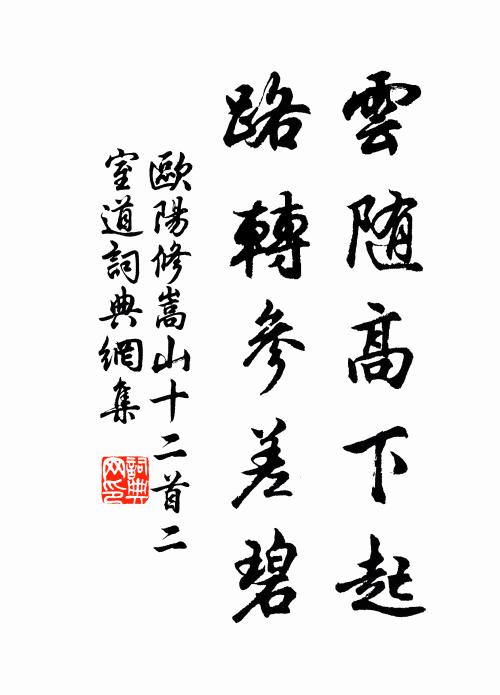 雲随高下起
路轉參差碧
歐陽修嵩山十二首二
室道詞典網集
詞典
网印